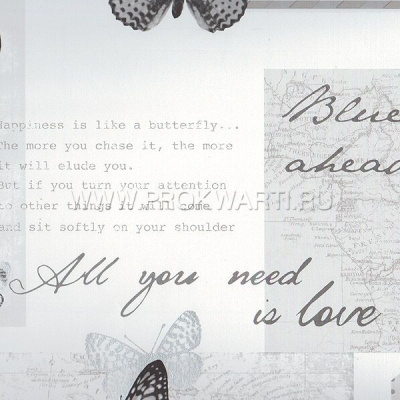 Happiness is like a butterfly...
The more you chase it, the more
it will elude you.
But if you turn your attention
to other things it will come
and sit softly on your shoulder
Blue
ahead
WWW.PROKVARTI.RU
All you need
is love